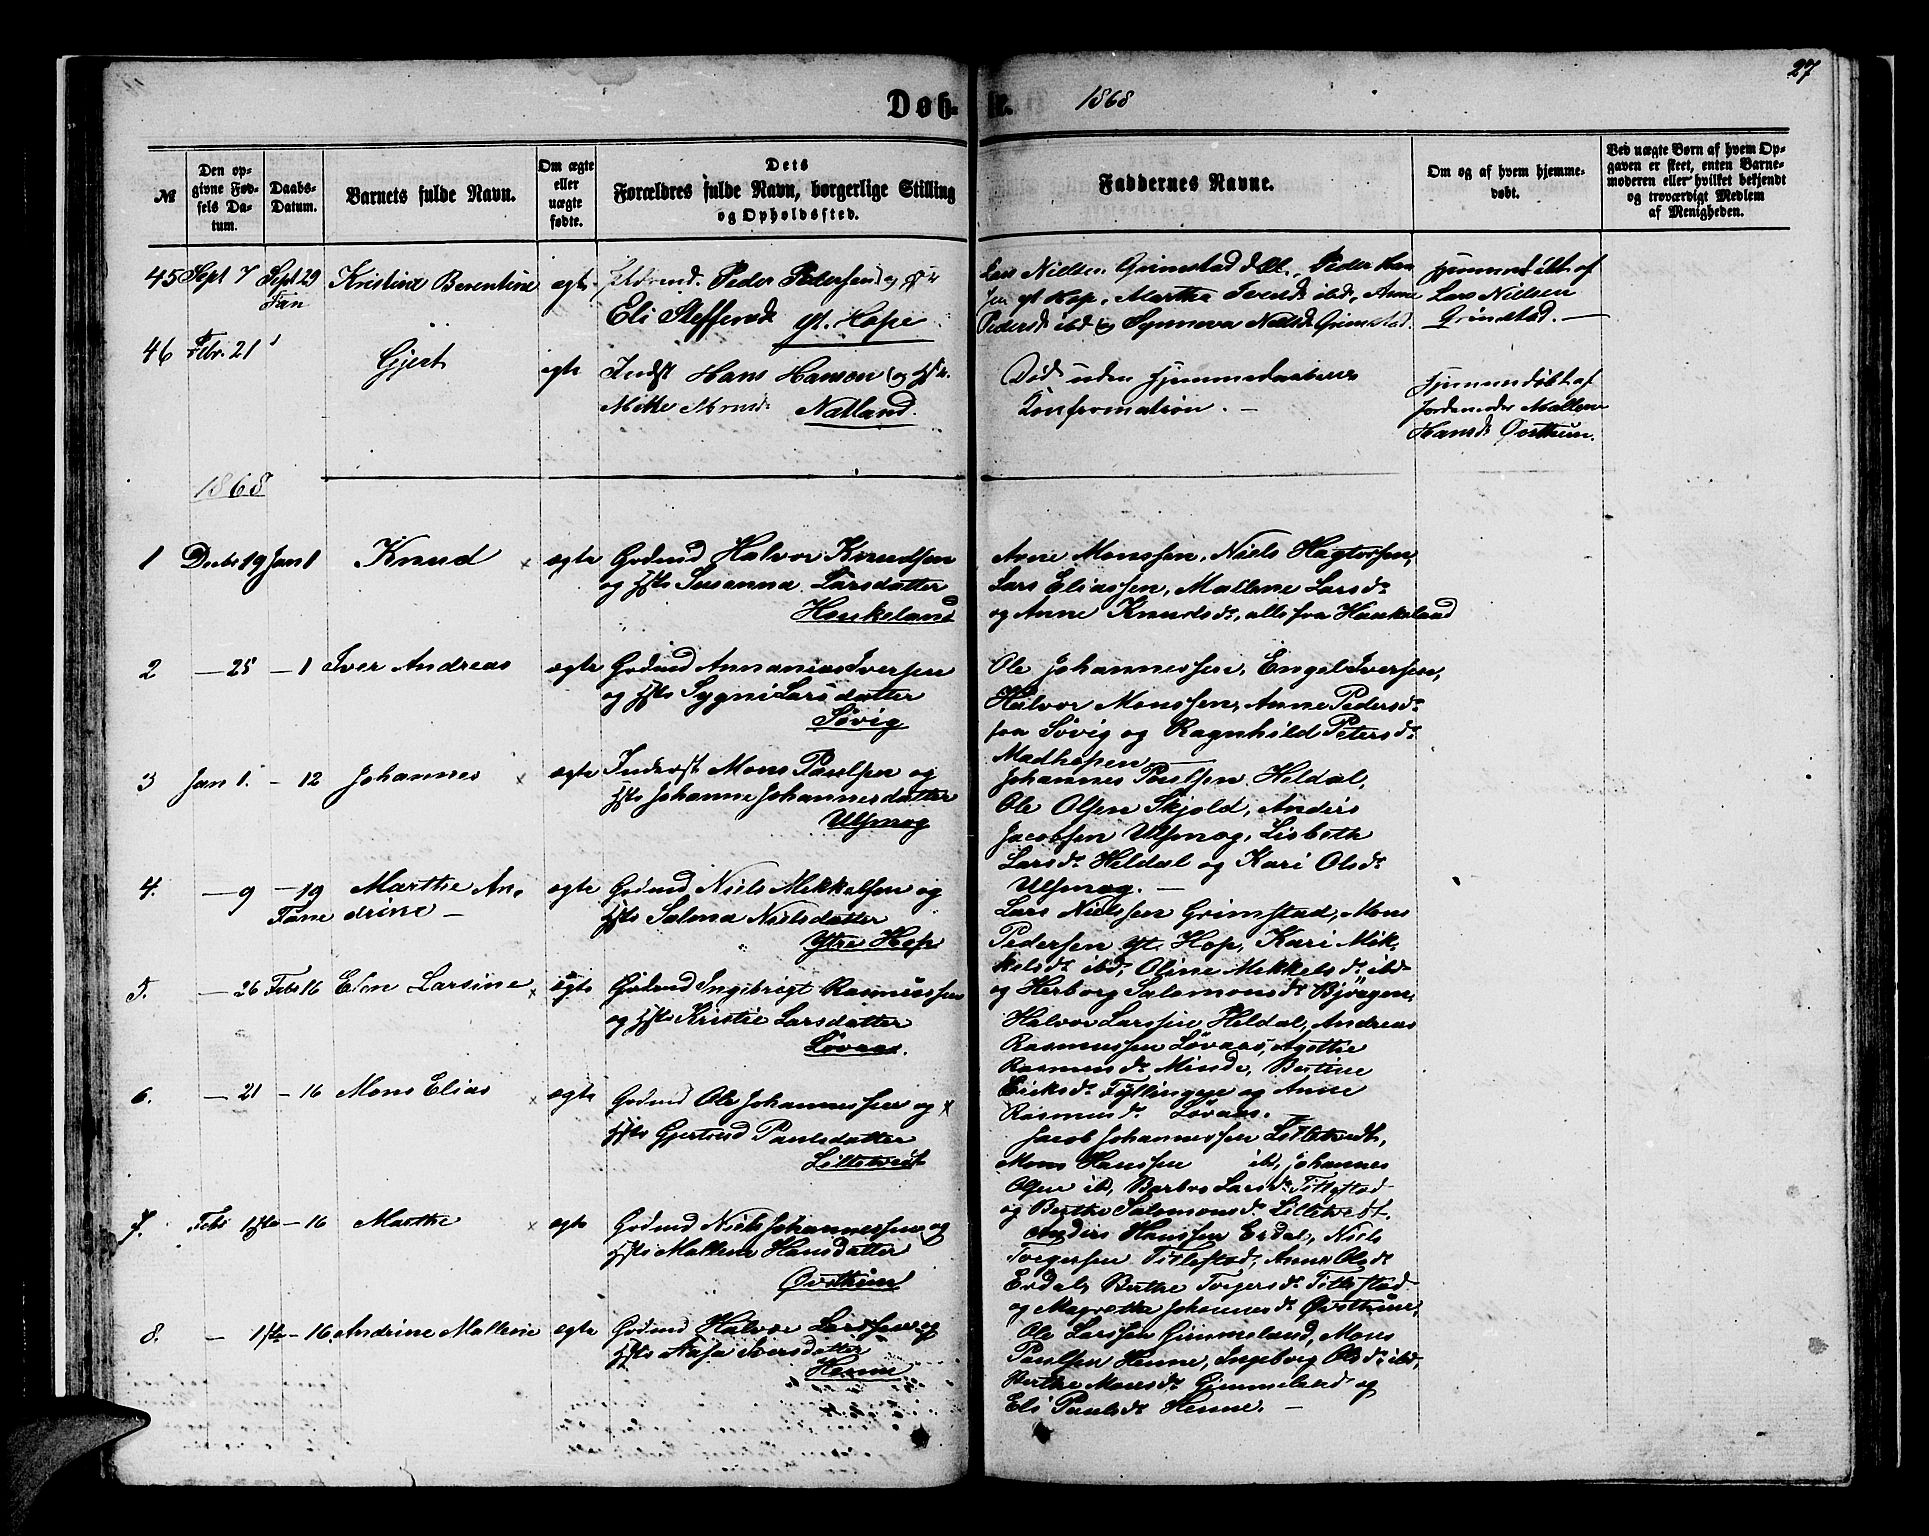 27
Døb- te. 1868
№
Den op-
givne Fød-
sels Da-
tum.
Daabs-
Datum.
Barnets fulde Navn.
Om ægte
eller
uægte
fødte.
Dets
Forældres fulde Navn, borgerlige Stilling
og Opholdssted.
Faddernes Navne.
Om og af hvem hjemme-
døbt.
Ved uægte Børn af hvem Op-
gaven er skeet, enten Barne-
moderen eller hvilket bekjendt
og troværdigt Medlem
af Menigheden.
45 Sept 7 Sept 29 Kristine Berentine ægte Peder Pedersen og
Fan
Eli Steffensd. yt. Hope
Lars Nielsen Grimestad, Peder Han
sen yt Hop, Martha ibd, Anne
Pedersd. ibd og Synneva Nielsd. Grimestad.
Hjemmedøbt af
Lars Nielsen
Grimstad. —
46 Febr. 21 Gjert ægte Indst Hans Hanson og Hst.
Mette Monsd. Natland.
Død uden Hjemmedaabens
Konfirmation. —
Hjemmedøbt af
Jordemoder Mallene
Hansd. Øvsthun.
1868
1 Decbr 19 Jan 1 Knud ægte Gdmd Halvor Knudsen
og Hst. Susanna Larsdatter
Haukeland
Arne Monssen, Niels Hagtorsen,
Lars Eliassen, Mallene Larsd.
og Anne Knudsd., alle fra Haukeland
2 — 25 — 1 Iver Andreas ægte Gdmd Annanias Iversen
og Hst. Sygni Larsdatter
Søvig
Ole Johannessen, Engel Iversen,
Halvor Monssen, Anne Pedersd.
fra Søvig og Ragnhild Petersd.
Madhopen —
3 Jan 1. — 12 Johannes ægte Inderst Mons Paulsen og
Hst. Johanne Johannesdatter
Ulsmog
Johannes Paulsen Heldal,
Ole Olsen Skjold, Anders
Jacobsen Ulsmog, Lisbeth
Larsd. Heldal og Kari Olsd.
Ulsmog. —
4. — 9 — 19 Marthe An-
Fane drine —
ægte Gdmd Niels Mikkelsen og
Hst. Salmd Nielsdatter
Ytre Hop
Lars Nielssen Grimstad, Mons
Pedersen yt. Hop, Kari Mik-
kelsd. ibd, Oline Mikkelsd. ibd
og Herborg Salomonsd. Bjørgen,
5. — 26 Febr 16 Elen Larsine ægte Gdmd Ingebrigt Rasmussen
og Hst. Kristie Larsdatter
Løvaas.
Halvor Larssen Heldal, Andreas
Rasmussen Løvaas, Agathe
Rasmusd. Minde, Bertine
Eriksd. Fyllingen og Anne
Rasmusd. Løvaas.
6. — 21 — 16 Mons Elias ægte Gdmd Ole Johannessen og
Hst. Gjertrud Paulsdatter
Litletvedt
Jacob Johannessen Litletvedt,
Mons Hanssen ibd, Johannes
Olsen ibd, Barbro Larsd. Titlestad
og Berthe Salomonsd. Litletvedt.
7. Febr 1ste — 16 Marthe ægte Gdmd Niels Johannessen og
Hst. Mallene Hansdatter
Øvsthun
Anders Hanssen Erdal, Niels
Torgersen Titlestad, Anna Olsd.
Erdal, Berthe Torgersd. Titlestad
og Magretha Johannesd. Øvsthun,
8. — 1ste — 16. Andrine Mallene ægte Gdmd Halvor Larssen og
Hst. Aasa Iversdatter
Henne
Ole Larssen Gimmeland, Mons
Paulsen Henne, Ingebrig Olsd. ibd,
Berthe Monsd. Gimmeland og
Eli Paulsd. Henne. —